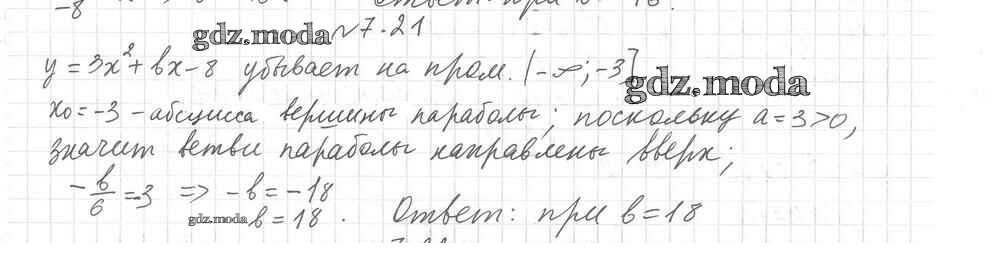 -8
Ответ: при
gdz.moda №7.21
y = 3x² + bx - 8 убывает на пром. (-∞; -3]
gdz.moda
x₀ = -3 - абсцисса вершины параболы; поскольку a = 3 > 0,
значит ветви параболы направлены вверх;
-b/6 = -3 => -b = -18
gdz.moda b = 18. Ответ: при b = 18